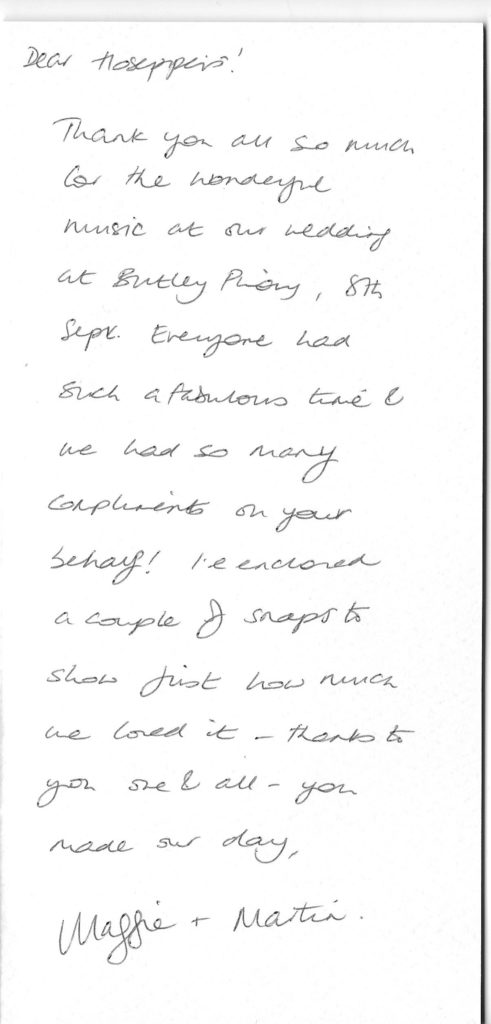 Dear Hoseppers!
Thank you all so much
for the wonderful
music at our wedding
at Butley Priory, 8th
Sept. Everyone had
such a fabulous time &
we had so many
compliments on your
behalf! I've enclosed
a couple of snaps to
show just how much
we loved it - thanks to
you one & all - you
made our day,
Maggie + Martin.